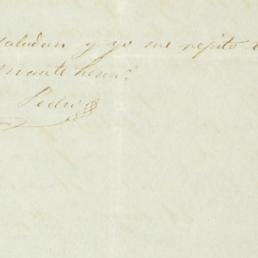 saludan y yo me repito
amante herm.º
Pedro